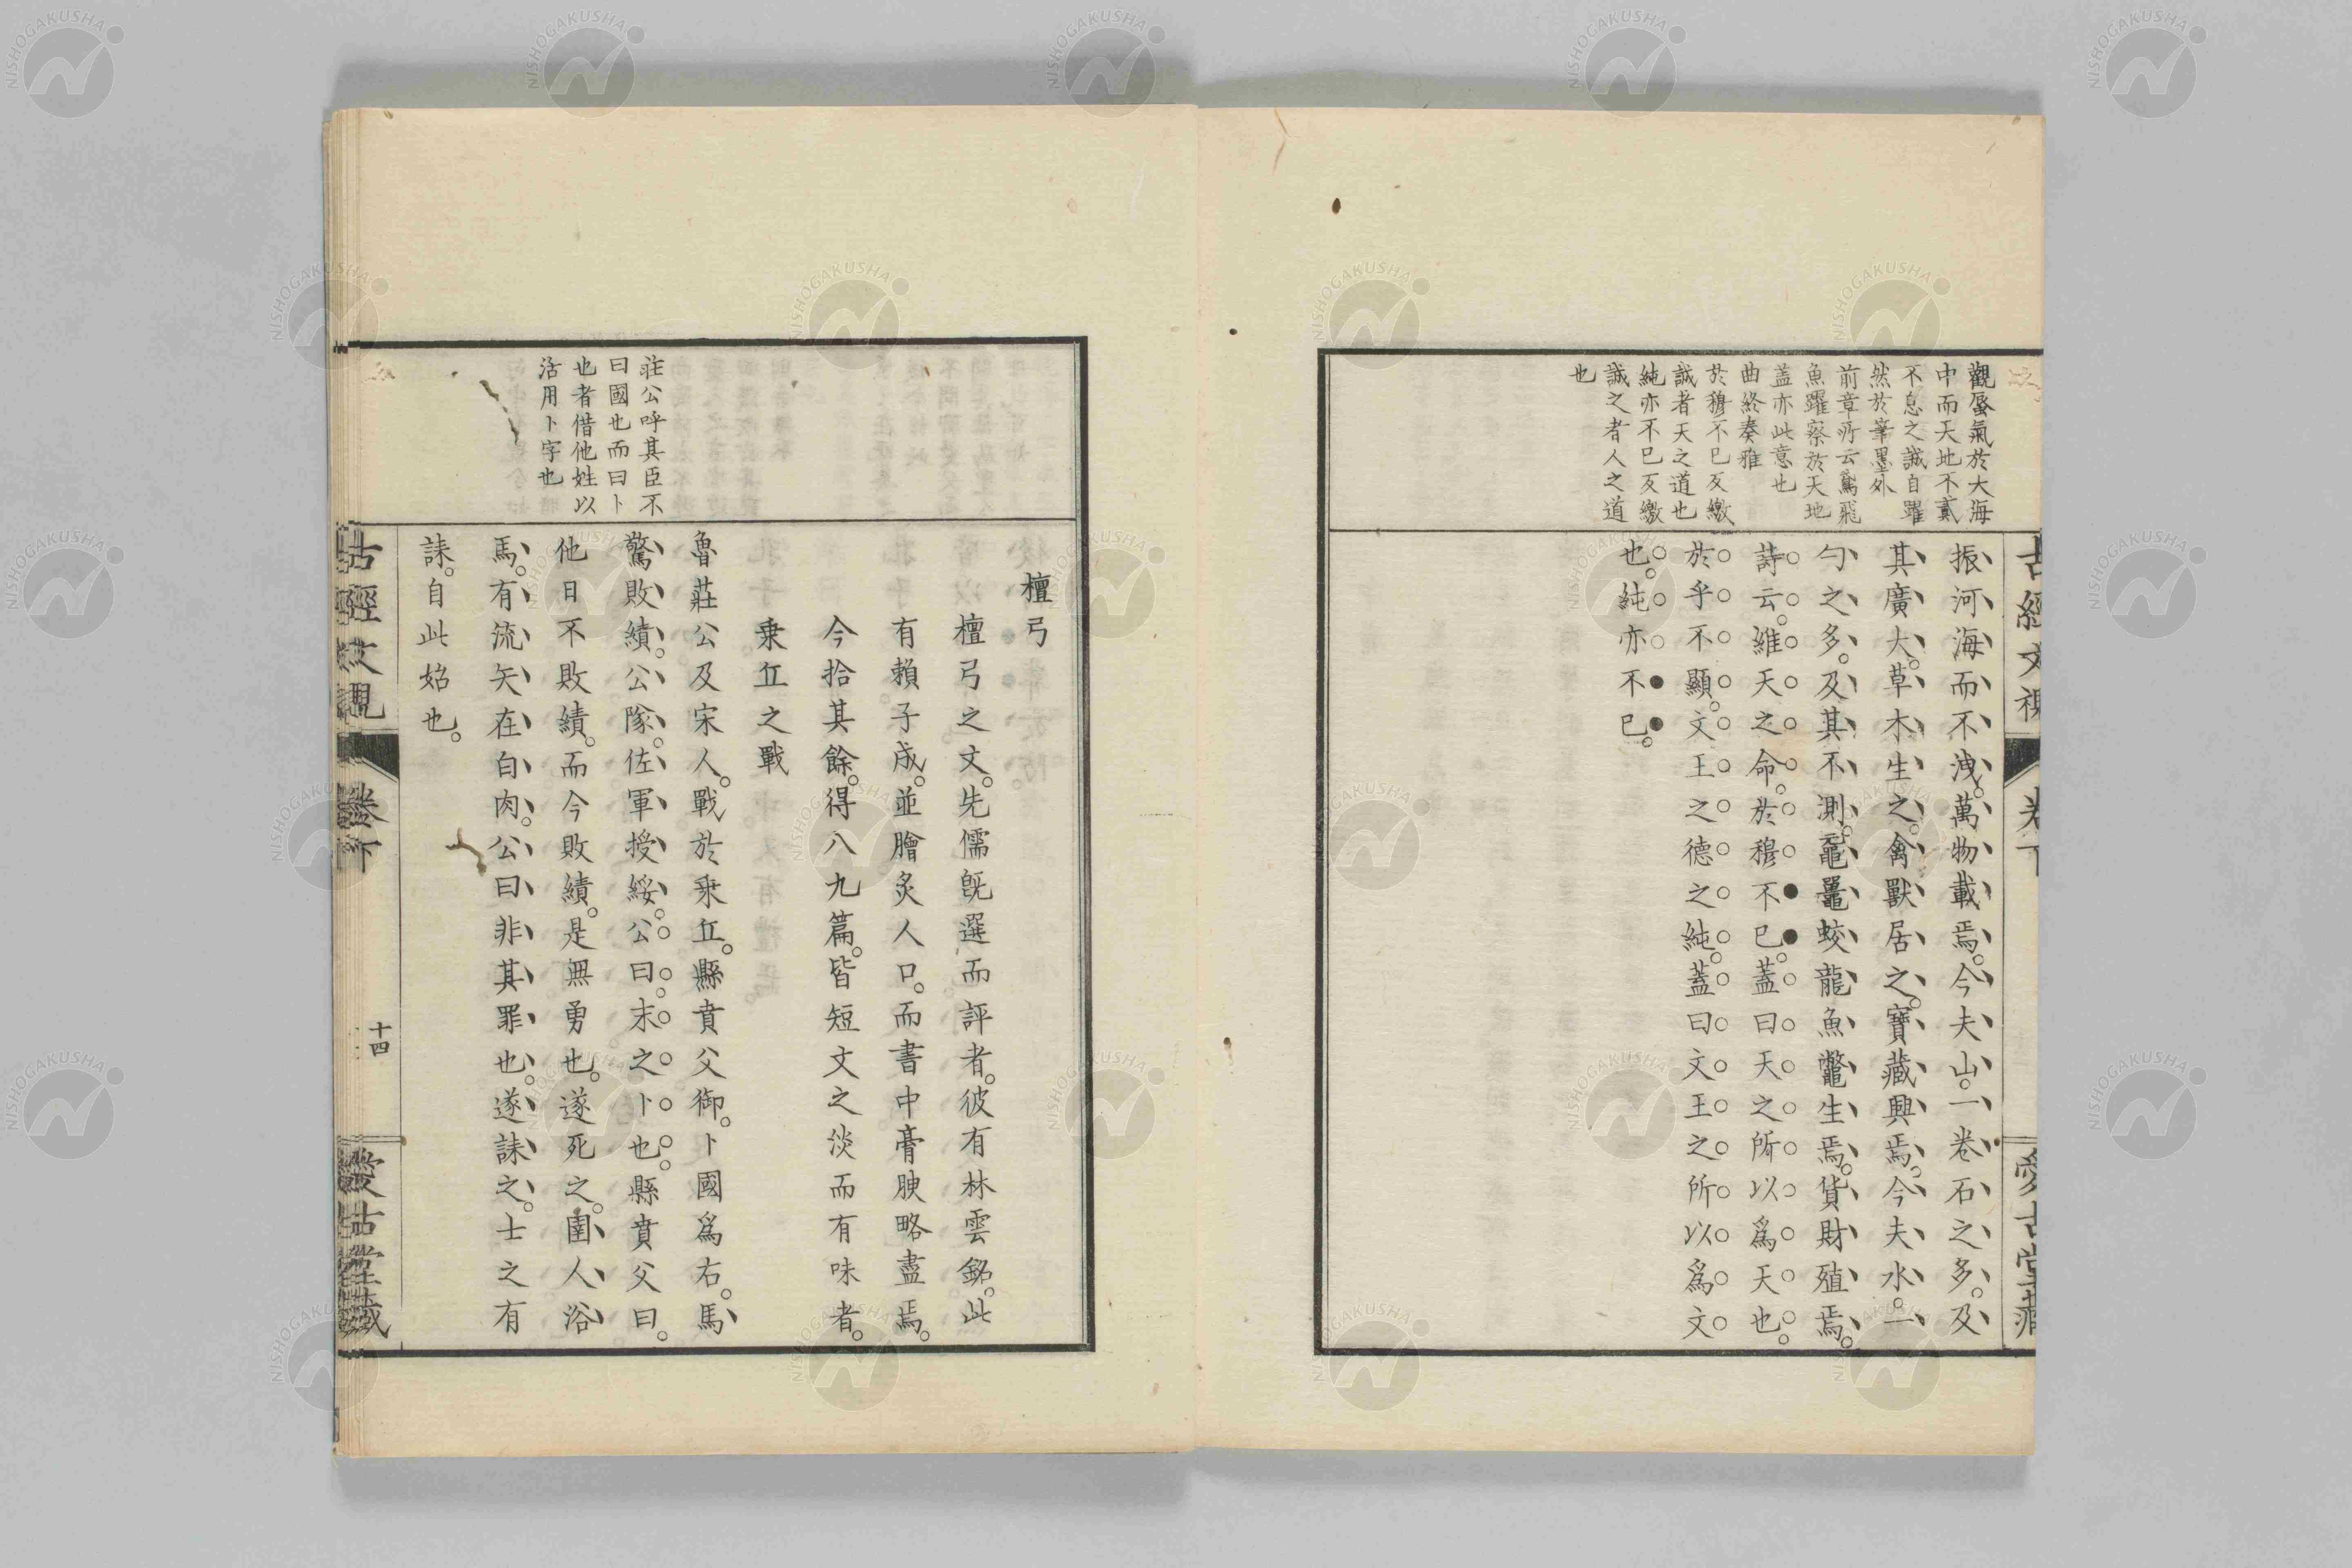 觀蜃氣於大海
中而天地不貳
不息之誠自躍
然於筆墨外
前章所云鳶飛
魚躍察於天地
蓋亦此意也
曲終奏雅
於穆不已反繳
誠者天之道也
純亦不已反繳
誠之者人之道
也
振河海而不洩。萬物載焉。今夫山。一卷石之多。及
其廣大。草木生之。禽獸居之。寶藏興焉。今夫水。一
勺之多。及其不測。黿鼉蛟龍魚鼈生焉。貨財殖焉。
詩云。維天之命。於穆不已。蓋曰天之所以爲天也。
於乎不顯。文王之德之純。蓋曰文王之所以爲文
也。純亦不已。
莊公呼其臣不
曰國也而曰卜
也者借他姓以
活用卜字也
檀弓
檀弓之文。先儒旣選而評者。彼有林雲銘。此
有賴子成。並膾炙人口。而書中膏腴略盡焉。
今拾其餘。得八九篇。皆短文之淡而有味者。
乗丘之戰
魯莊公及宋人。戰於乗丘。縣賁父御。卜國爲右。馬
驚敗績。公隊。佐軍授綏。公曰。末之卜也。縣賁父曰。
他日不敗績。而今敗績。是無勇也。遂死之。圉人浴
馬。有流矢在白肉。公曰非其罪也。遂誄之。士之有
誄。自此始也。
古經文視 卷下 十四 愛古堂藏
NISHOGAKUSHA